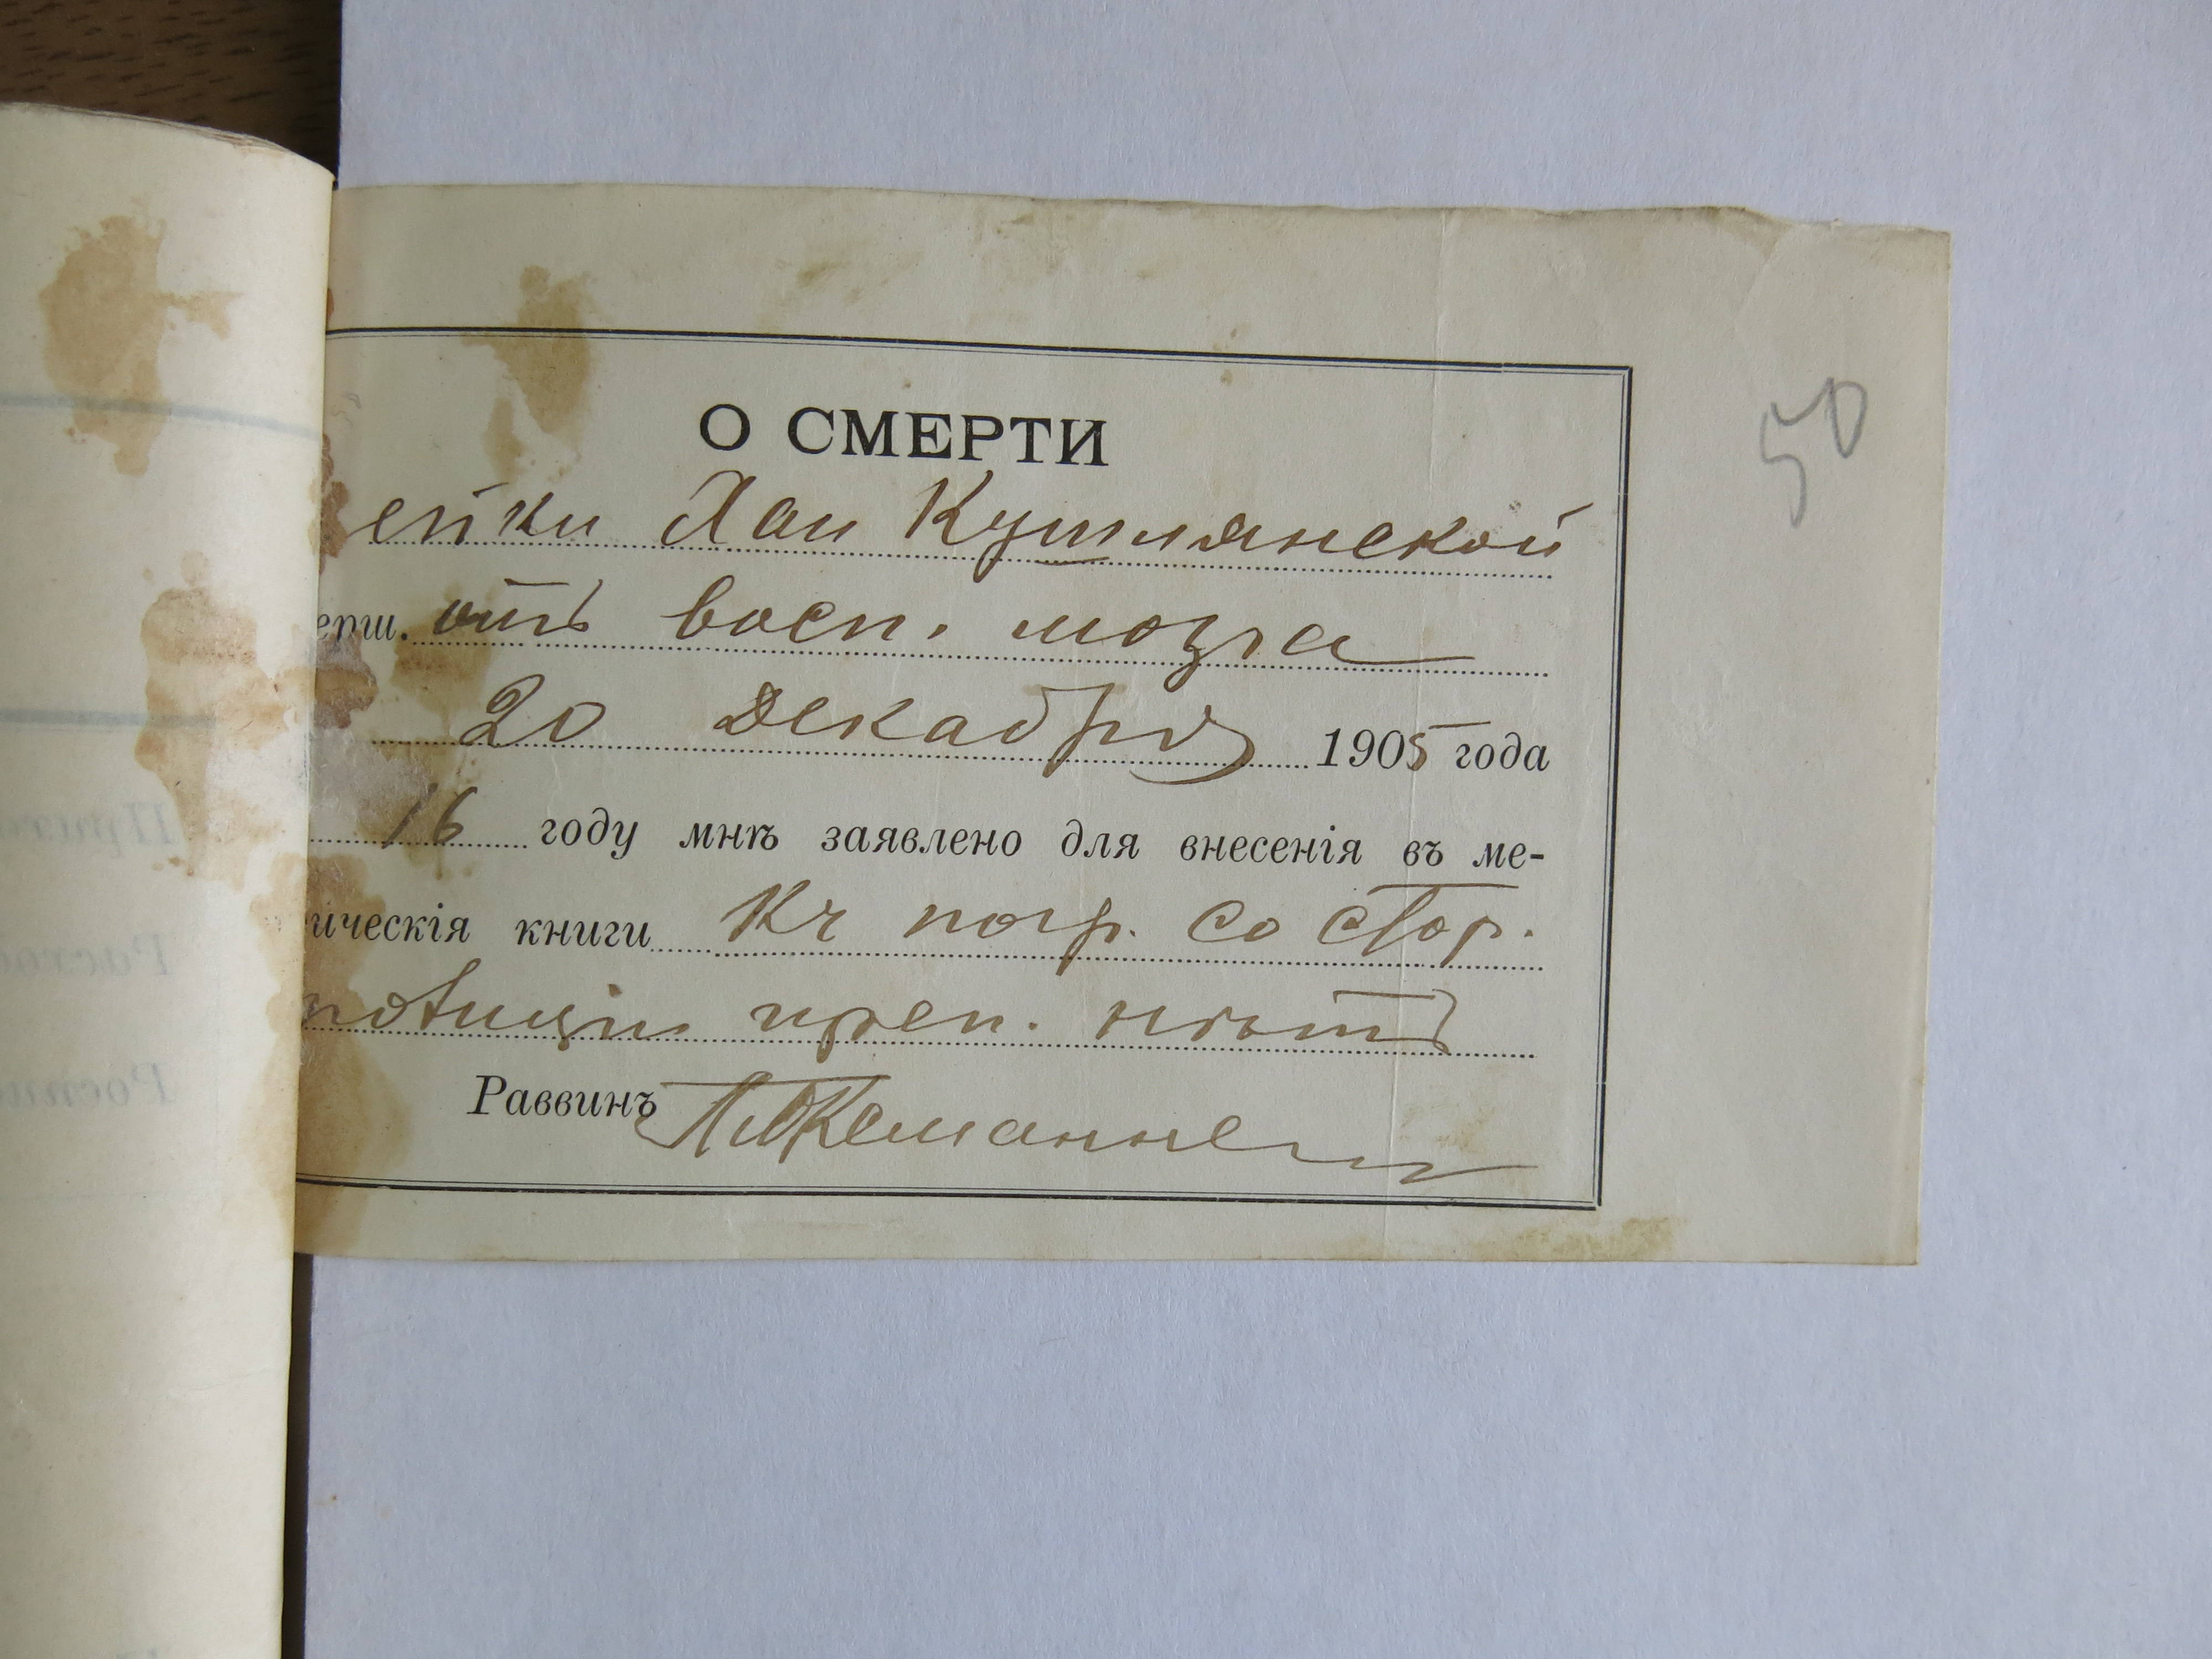 50
О СМЕРТИ
ейки Хаи Кушлянской
ерш. отъ восп. мозга
20 декабря 1905 года
16 году мнѣ заявлено для внесенія въ ме-
ическія книги Къ погр. со стор.
полиціи преп. нѣтъ
Раввинъ